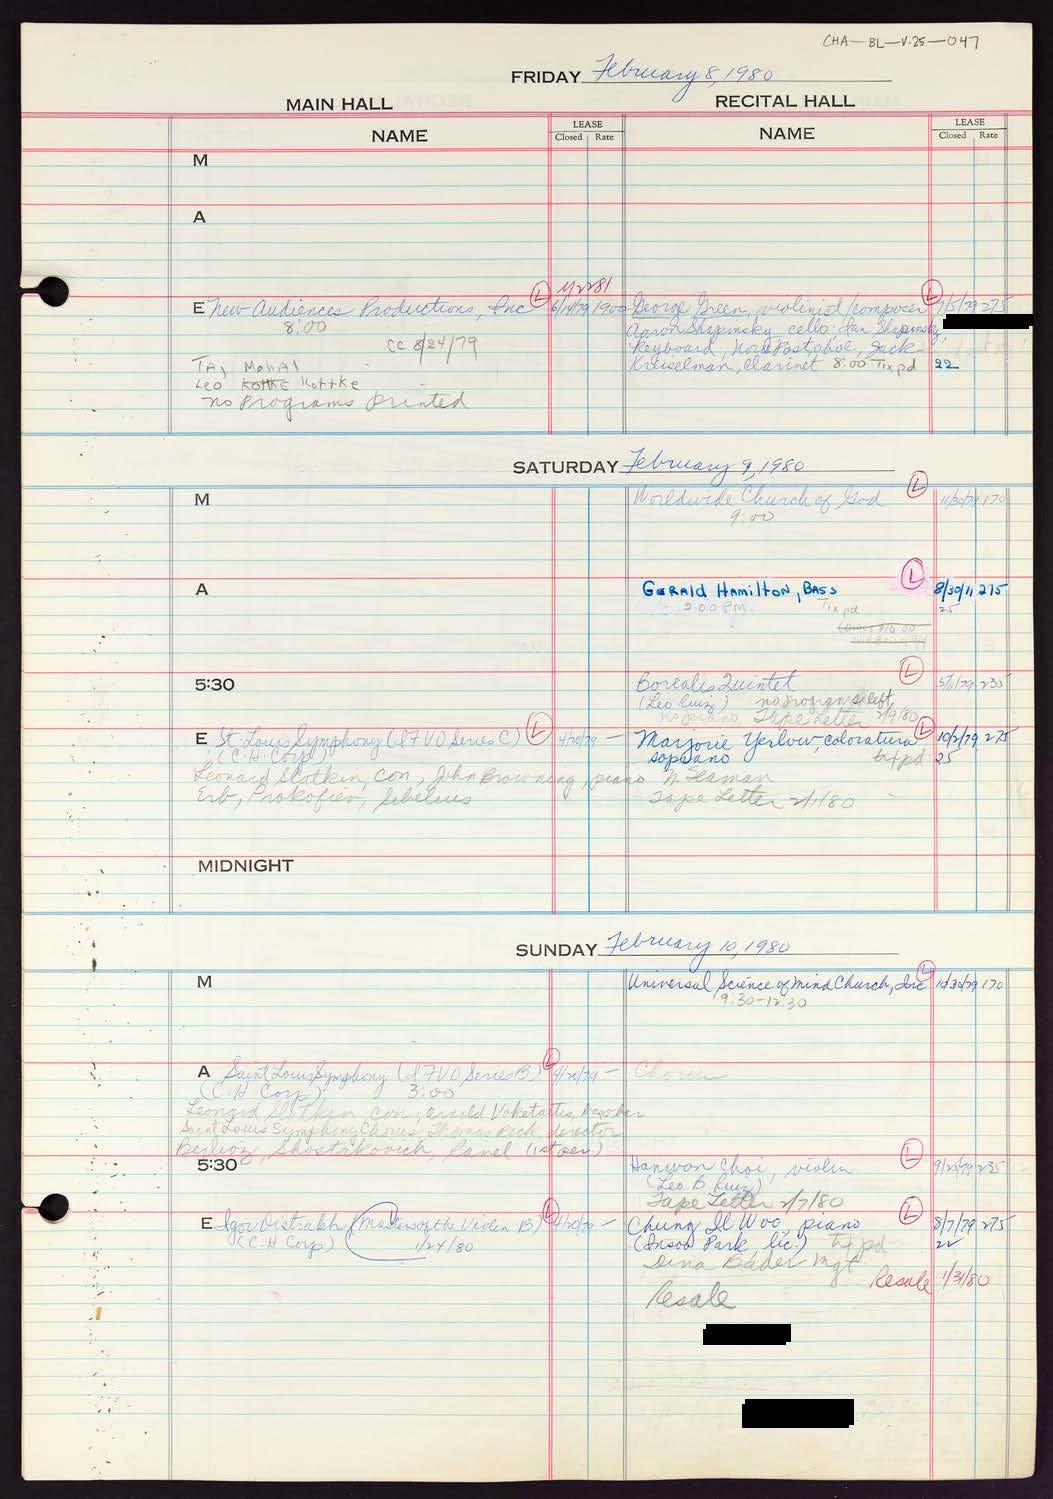 CHA-BL-V-25-047
FRIDAY February 8, 1980
MAIN HALL
RECITAL HALL
NAME
LEASE
Closed Rate
NAME
LEASE
Closed Rate
M
A
M2281
E New Audiences Productions, Inc L 6/14/79 1900
8:00
CC 8/24/79
TAJ Mahal
Leo Kottke Kottke
no Programs printed
George Green, violinist/composer L 7/5/79 275
Aaron Shapinsky, cello. Ian Shapinsky,
Keyboard, Nora Post, oboe, Jack
Kreiselman, clarinet 8:00 Tix pd 22
SATURDAY February 9, 1980
M
Worldwide Church of God L 11/30/79 170
9:00
A
Gerald Hamilton, Bass L 8/30/11 275
2:00 PM Tix pd 25
5:30
Borealis Quintet L 5/11/79 235
(Leo Ruiz) no programs left
no piano, Tape Letter 2/9/80
E St. Louis Symphony (I7VO Series C) L 4/20/79 —
(C.H. Corp)
Leonard Slatkin, con, John Browning, piano
Erb, Prokofiev, Sibelius
Marjorie Yerlow, coloratura L 10/2/79 275
soprano tix pd 25
N Seaman
Tape Letter 2/1/80
MIDNIGHT
SUNDAY February 10, 1980
M
Universal Science of Mind Church, Inc L 10/30/79 170
9:30-12:30
A Saint Louis Symphony (I7VO Series B) L 4/20/79 —
(C.H Corp) 3:00
Leonard Slatkin con,
Saint Louis Symphony Chorus, Thomas Peck director
Berlioz, Shostakovich, Ravel (1st per.)
Chorus
5:30
Hanwon Choi, violin L 235
(Leo B Ruiz)
Tape Letter 2/7/80
E Igor Oistrakh (Masters of the Violin B) L 4/20/79 —
(C.H Corp) 1/24/80
Chung Il Woo, piano L 8/7/79 275
(Insook Park lic.) tix pd 22
Dina Bader Mgt
Resale 1/31/80
Resale